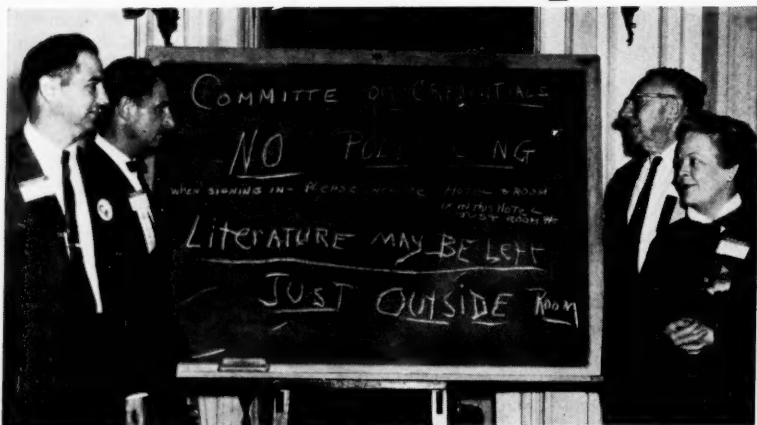 COMMITTE ON CREDENTIALS
NO
WHEN SIGNING IN - PLEASE HOTEL & ROOM
IF IN THIS HOTEL
JUST ROOM #
LITERATURE MAY BE LEFT
JUST OUTSIDE ROOM